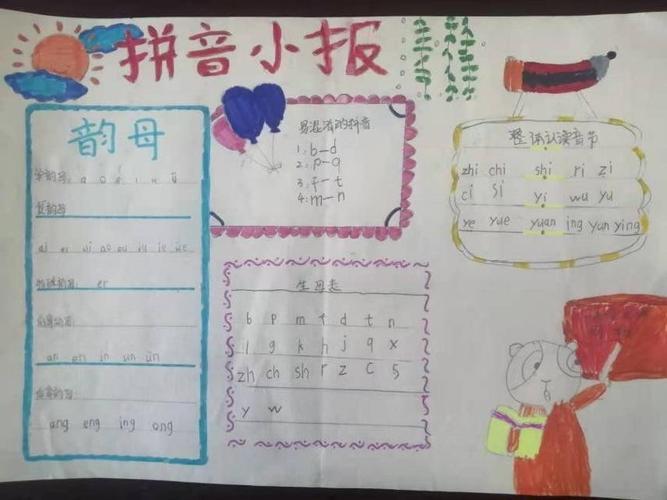 拼音小报
韵母
单韵母: a o e i u ü
复韵母
ai ei ui ao ou iu ie üe
特殊韵母: er
前鼻韵母:
an en in un ün
后鼻韵母:
ang eng ing ong
易混淆的拼音
1. b—d
2. p—q
3. f—t
4. m—n
声母表
b p m f d t n
l g k h j q x
zh ch sh r z c s
y w
整体认读音节
zhi chi shi ri zi
ci si yi wu yu
ye yue yuan ing yun ying